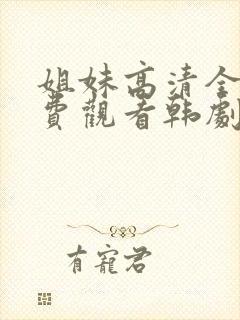 姐妹高清全
費觀看韩劇
有寵君